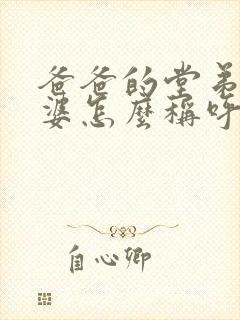 爸爸的堂弟
婆怎麼稱呼
自心卿